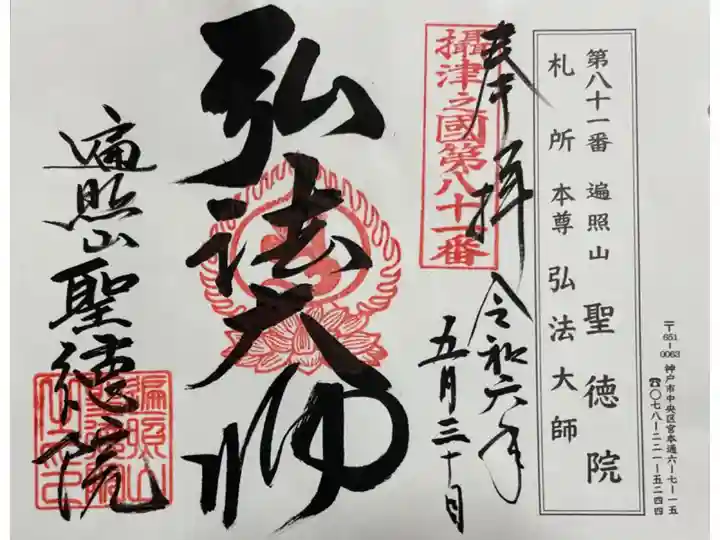 第八十一番 遍照山 聖徳院
札所 本尊 弘法大師
〒651-0063 神戸市中央区宮本通六-七-一五
☎〇七八-二二一-五二四四
奉拝 令和六年
五月三十日
攝津之國第八十一番
弘法大師
遍照山聖徳院